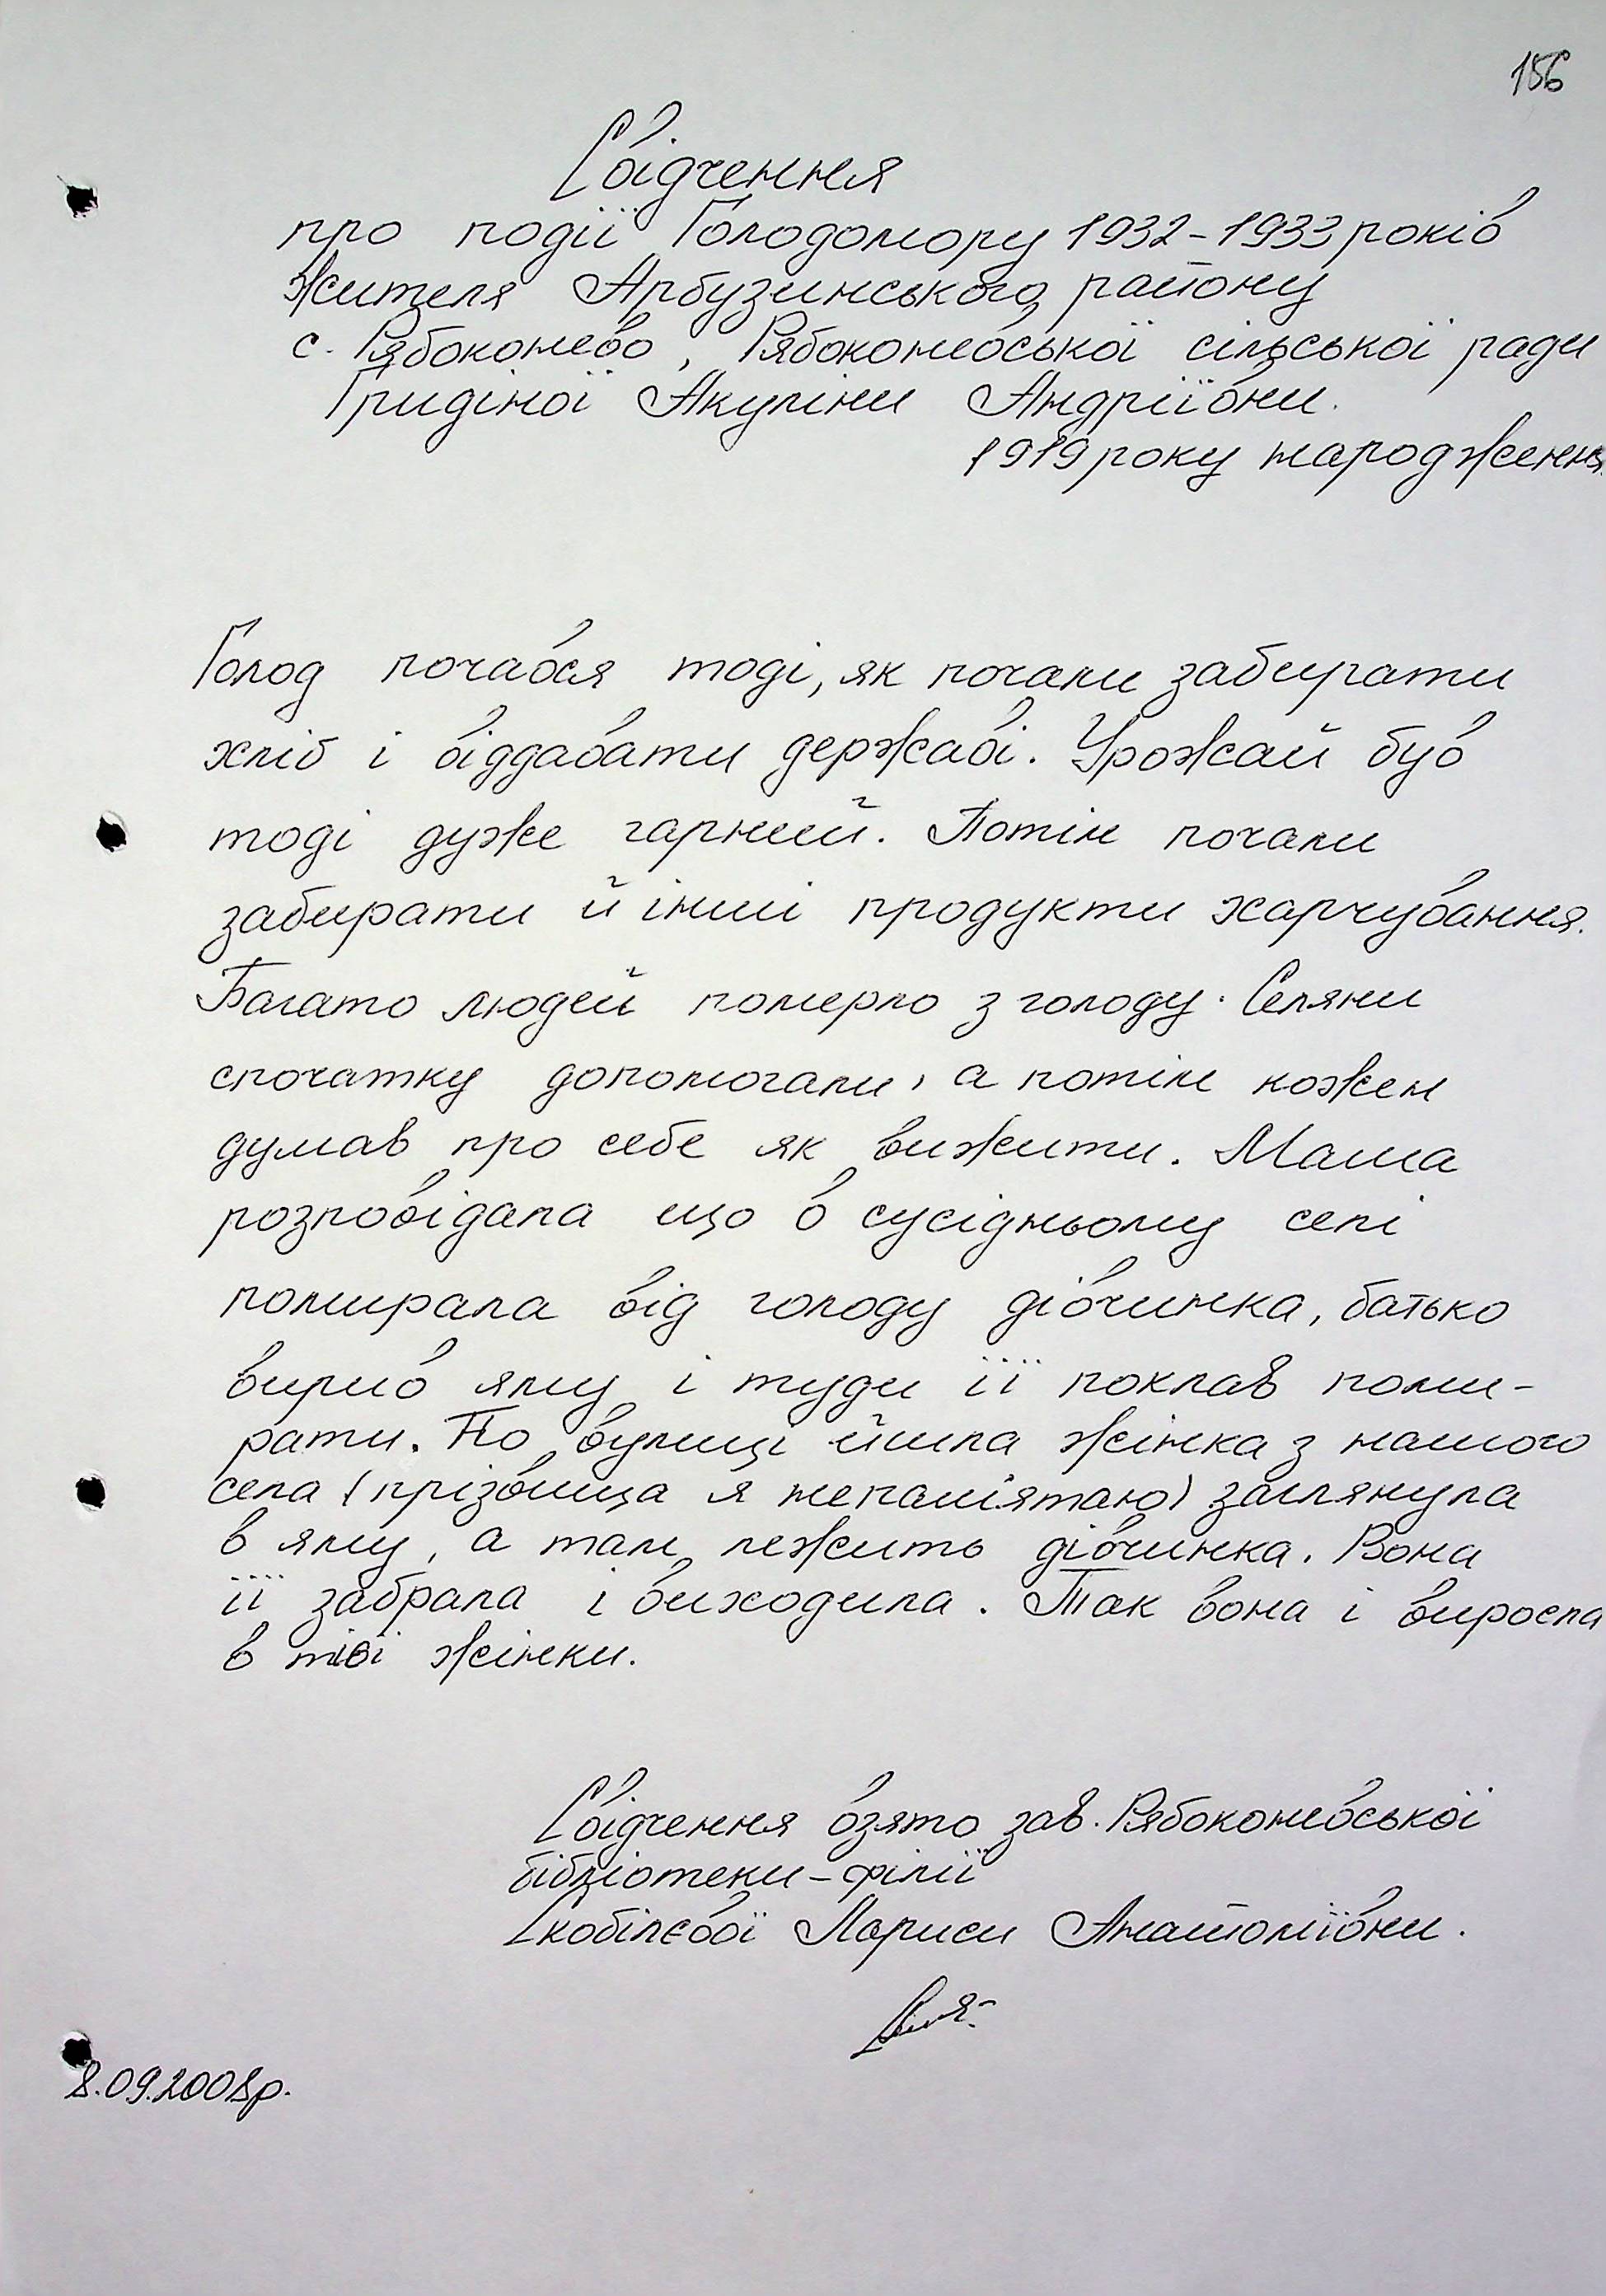 156
Свідчення
про події Голодомору 1932-1933 років
жителя Арбузинського району
с. Рябоконево, Рябоконевської сільської ради
Гридіної Акуліни Андріївни.
1919 року народження
Голод почався тоді, як почали забирати
хліб і віддавати державі. Урожай був
тоді дуже гарний. Потім почали
забирати й інші продукти харчування.
Багато людей померло з голоду. Селяни
спочатку допомогали, а потім кожен
думав про себе як вижити. Мама
розповідала що в сусідньому селі
помирала від голоду дівчинка, батько
вирив яму і туди її поклав поми-
рати. По вулиці йшла жінка з нашого
села (прізвища я непам'ятаю) заглянула
в яму, а там лежить дівчинка. Вона
її забрала і виходила. Так вона і виросла
в тієї жінки.
Свідчення взято зав. Рябоконевської
бібліотеки-філії
Скобілєвої Лариси Анатоліївни.
8.09.2008р.